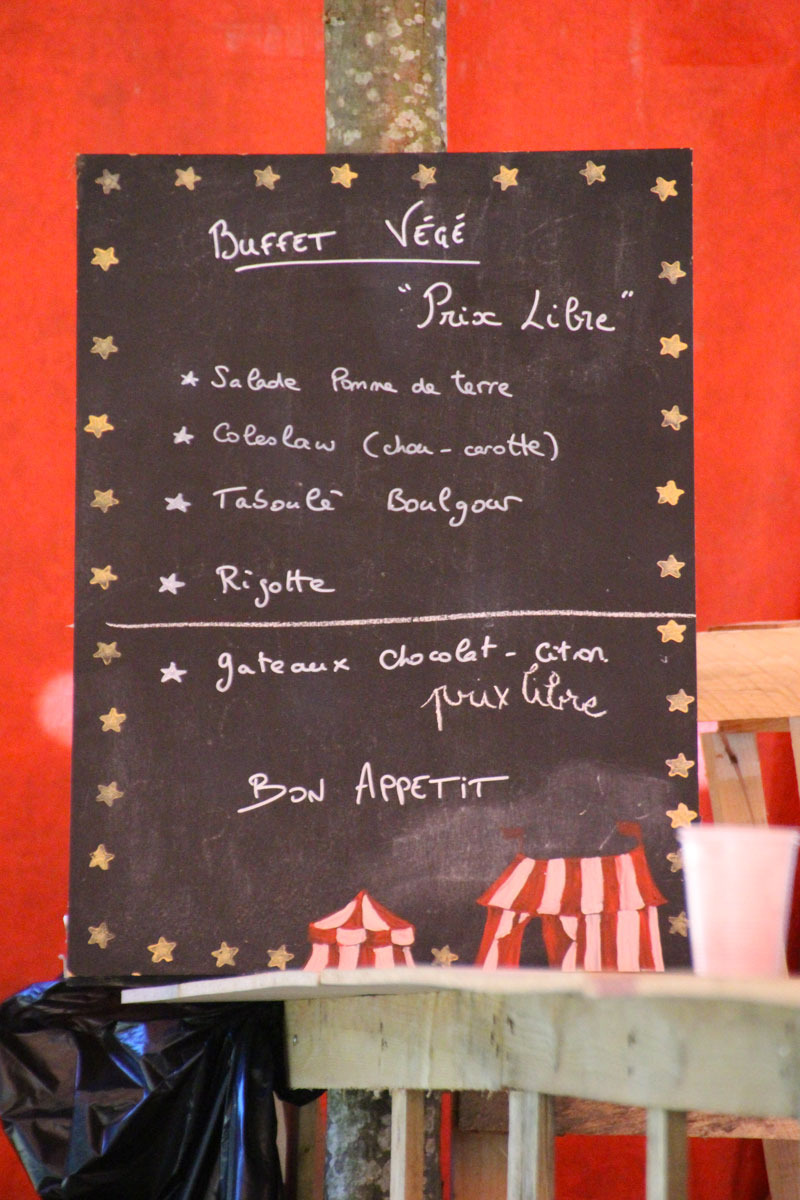 BUFFET VÉGÉ
"Prix Libre"
Salade Pomme de terre
Coleslaw (chou - carotte)
Taboulé Boulgour
Rigotte
gateaux chocolat - citron
prix libre
BON APPETIT